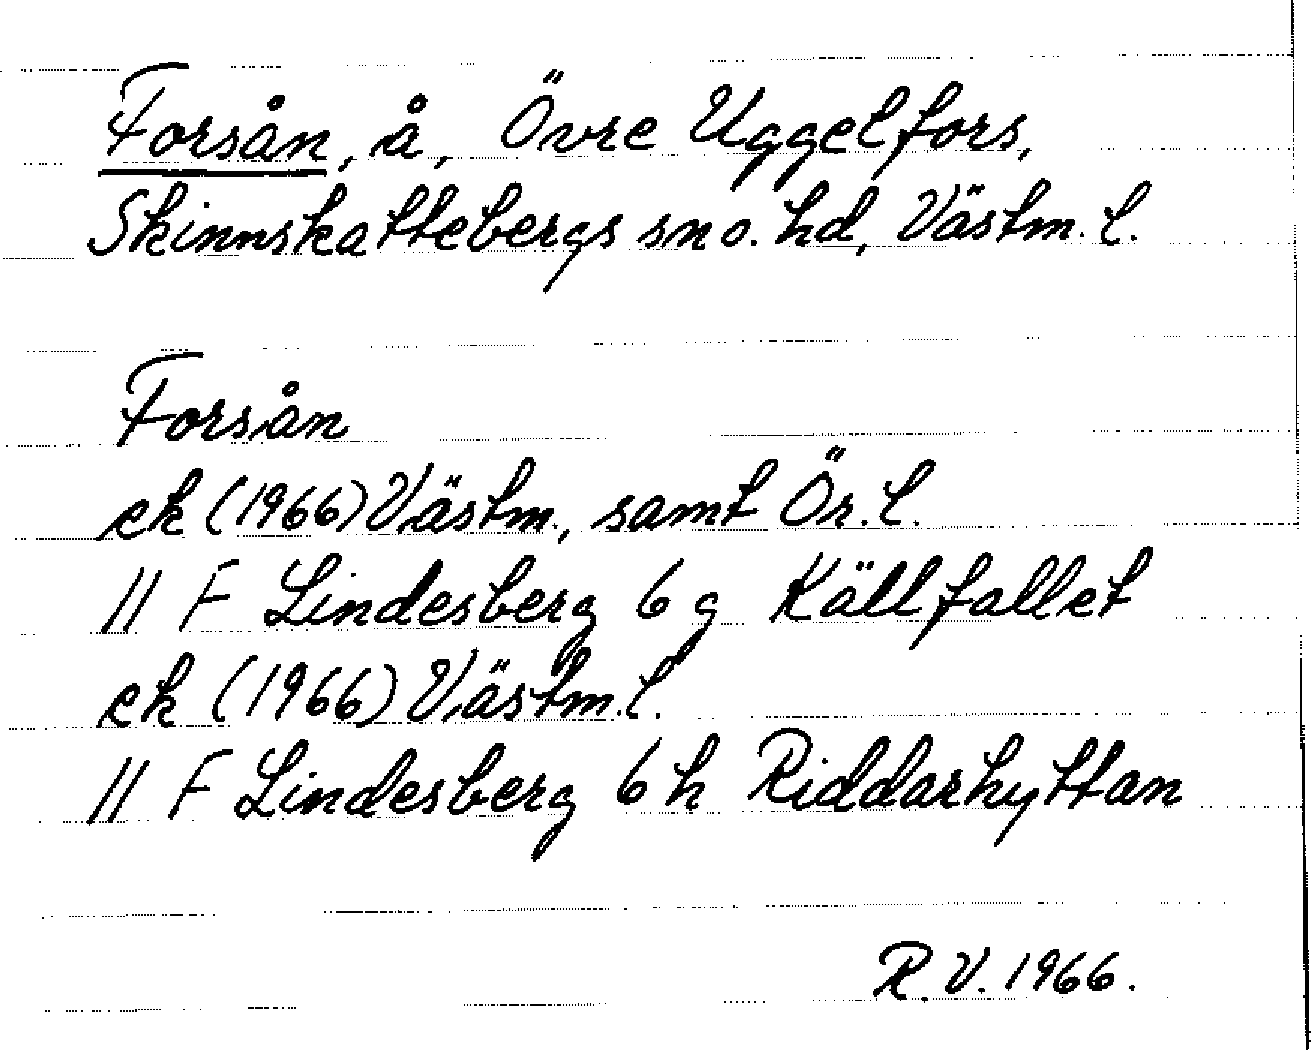 Forsån, å, Övre Uggelfors,
Skinnskattebergs sn o. hd, Västm. l.
Forsån
ek (1966) Västm., samt Ör. l.
11 F Lindesberg 6 g Källfallet
ek (1966) Västm. l.
11 F Lindesberg 6 h Riddarhyttan
R. V. 1966.